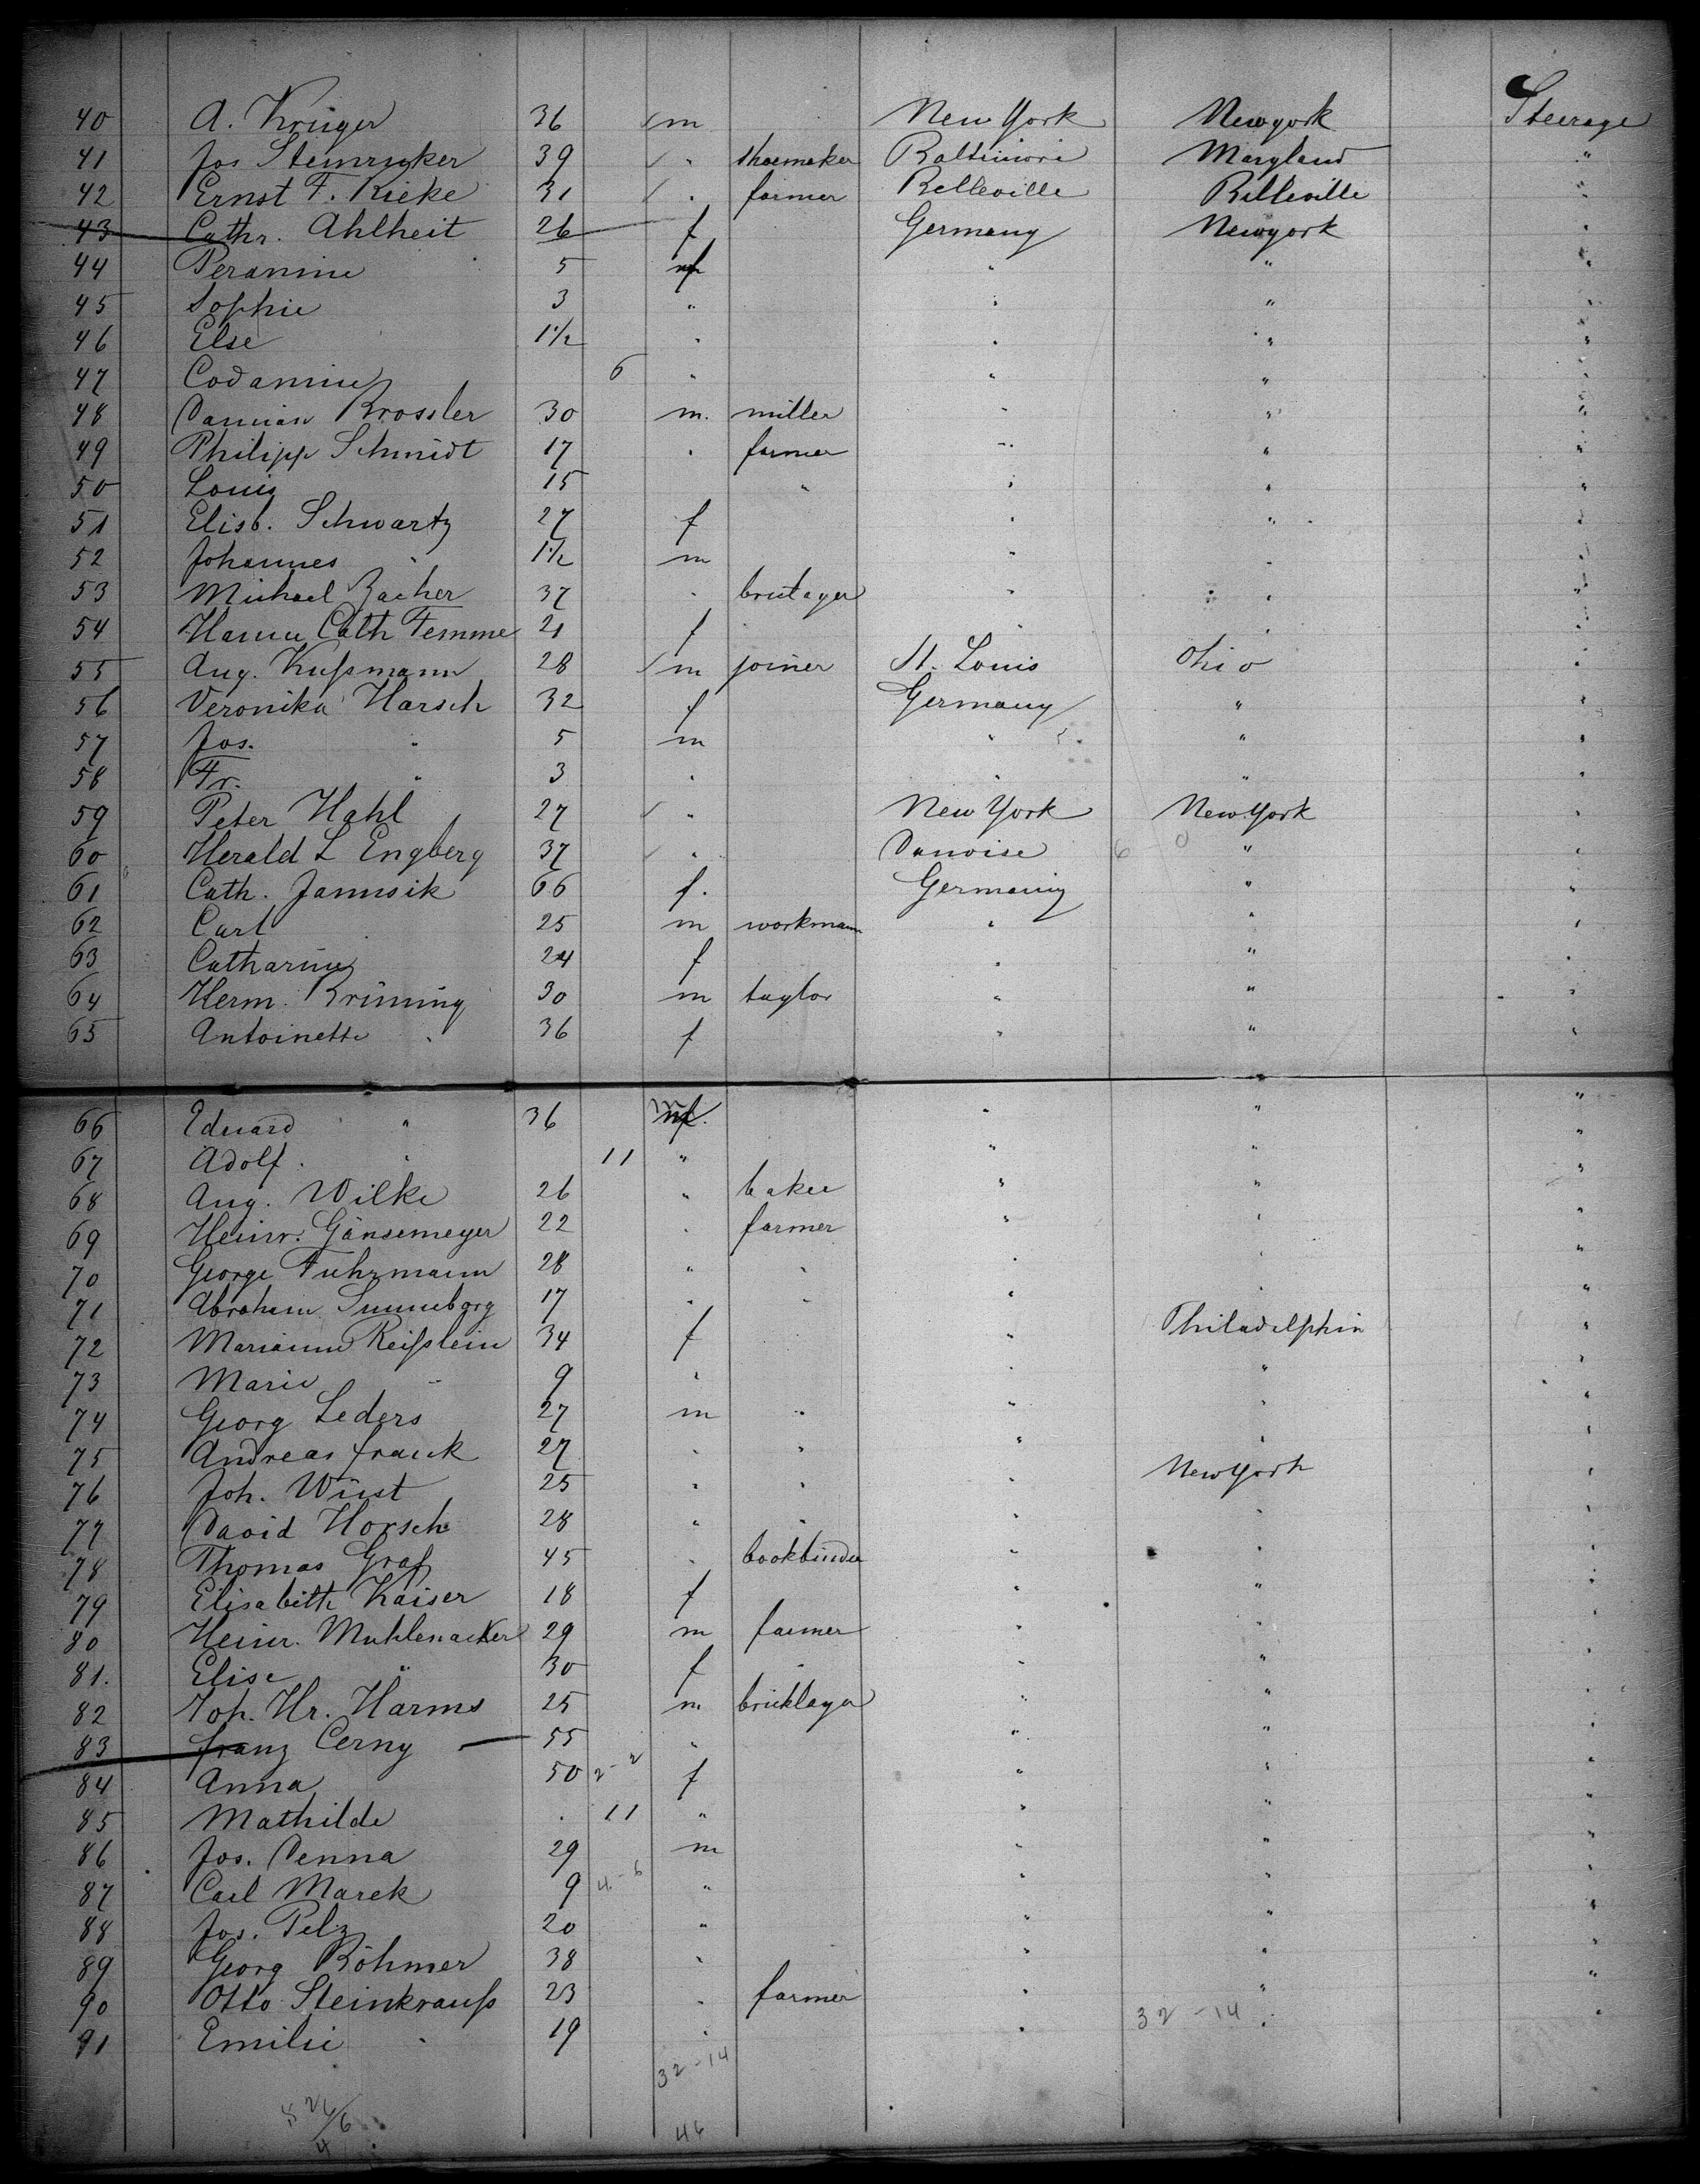 40 A. Krüger 36 ✓ m New York Newyork Steerage
41 Jos Steinryker 39 ✓ " shoemaker Baltimore Maryland "
42 Ernst F. Rieke 31 ✓ " farmer Belleville Belleville "
43 Cathr. Ahlheit 26 f Germany Newyork "
44 Peranine 5 f " " "
45 Sophie 3 " " " "
46 Else 1 1/2 " " " "
47 6 " " " "
48 Damian Brossler 30 m. miller " " "
49 Philipp Schmidt 17 " farmer " " "
50 Louis 15 " " " "
51 Elisb. Schwartz 27 f " " "
52 Johannes " 1 1/2 m " " "
53 Michael Bacher 37 " " " "
54 Hanne Cath Femme 21 f " " "
55 Aug. Kußmann 28 ✓ m joiner St. Louis Ohio "
56 Veronika Harsch 32 f Germany " "
57 Jos. " 5 m " " "
58 Fr. " 3 " " " "
59 Peter Hahl 27 ✓ " New York New York "
60 Herald L Engberg 37 ✓ " Danoise 6 0 " "
61 Cath. Janusik 66 f. Germany " "
62 Carl 25 m workmann " " "
63 Catharine 24 f " " "
64 Herm. Brüning 30 m taylor " " "
65 Antoinette " 36 f " " "
66 Eduard " 36 m " " "
67 Adolf. " 11 " " " "
68 Aug. Wilke 26 " baker " " "
69 Heinr. Gänsemeyer 22 " farmer " " "
70 George Fuhrmann 28 " " " " "
71 Abraham Sunneborg 17 " " " " "
72 Marianne Reißlein 34 f " Philadelphia "
73 Marie " 9 " " " "
74 Georg Leders 27 m " " " "
75 Andreas Frank 27 " " " " "
76 Joh. Wüst 25 " " " New York "
77 David Horsch 28 " " " " "
78 Thomas Graf 45 " bookbinder " " "
79 Elisabeth Kaiser 18 f " " "
80 Heinr. Muhlenacker 29 m farmer " " "
81. Elise " 30 f " " " "
82 Joh. Hr. Harms 25 m bricklayer " " "
83 Franz Cerny 55 " " " "
84 Anna 50 2-2 f " " "
85 Mathilde 11 " " " "
86 Jos. Denna 29 m " " "
87 Carl Marek 9 4-6 " " " "
88 Jos. Pelz 20 " " " "
89 Georg Böhmer 38 " " " "
90 Otto Steinkrauß 23 " farmer " " "
91 Emilie " 19 " " 32-14 " "
32-14
46